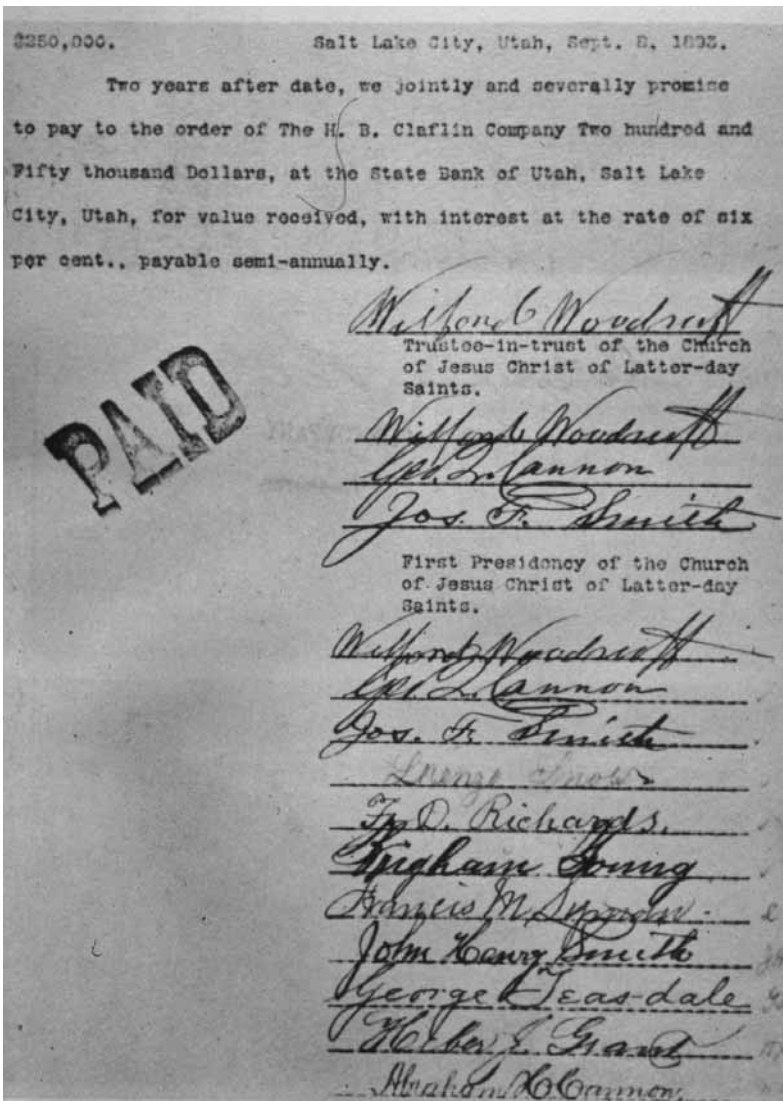 $250,000. Salt Lake City, Utah, Sept. 2, 1893.
Two years after date, we jointly and severally promise
to pay to the order of The H. B. Claflin Company Two hundred and
Fifty thousand Dollars, at the State Bank of Utah, Salt Lake
City, Utah, for value received, with interest at the rate of six
per cent., payable semi-annually.
Wilford Woodruff
Trustee-in-trust of the Church
of Jesus Christ of Latter-day
Saints.
PAID
Wilford Woodruff
Geo. Q. Cannon
Jos. F. Smith
First Presidency of the Church
of Jesus Christ of Latter-day
Saints.
Wilford Woodruff
Geo. Q. Cannon
Jos. F. Smith
Lorenzo Snow
F. D. Richards.
Brigham Young
Francis M. Lyman.
John Henry Smith
George Teasdale
Heber J. Grant
Abraham H. Cannon.